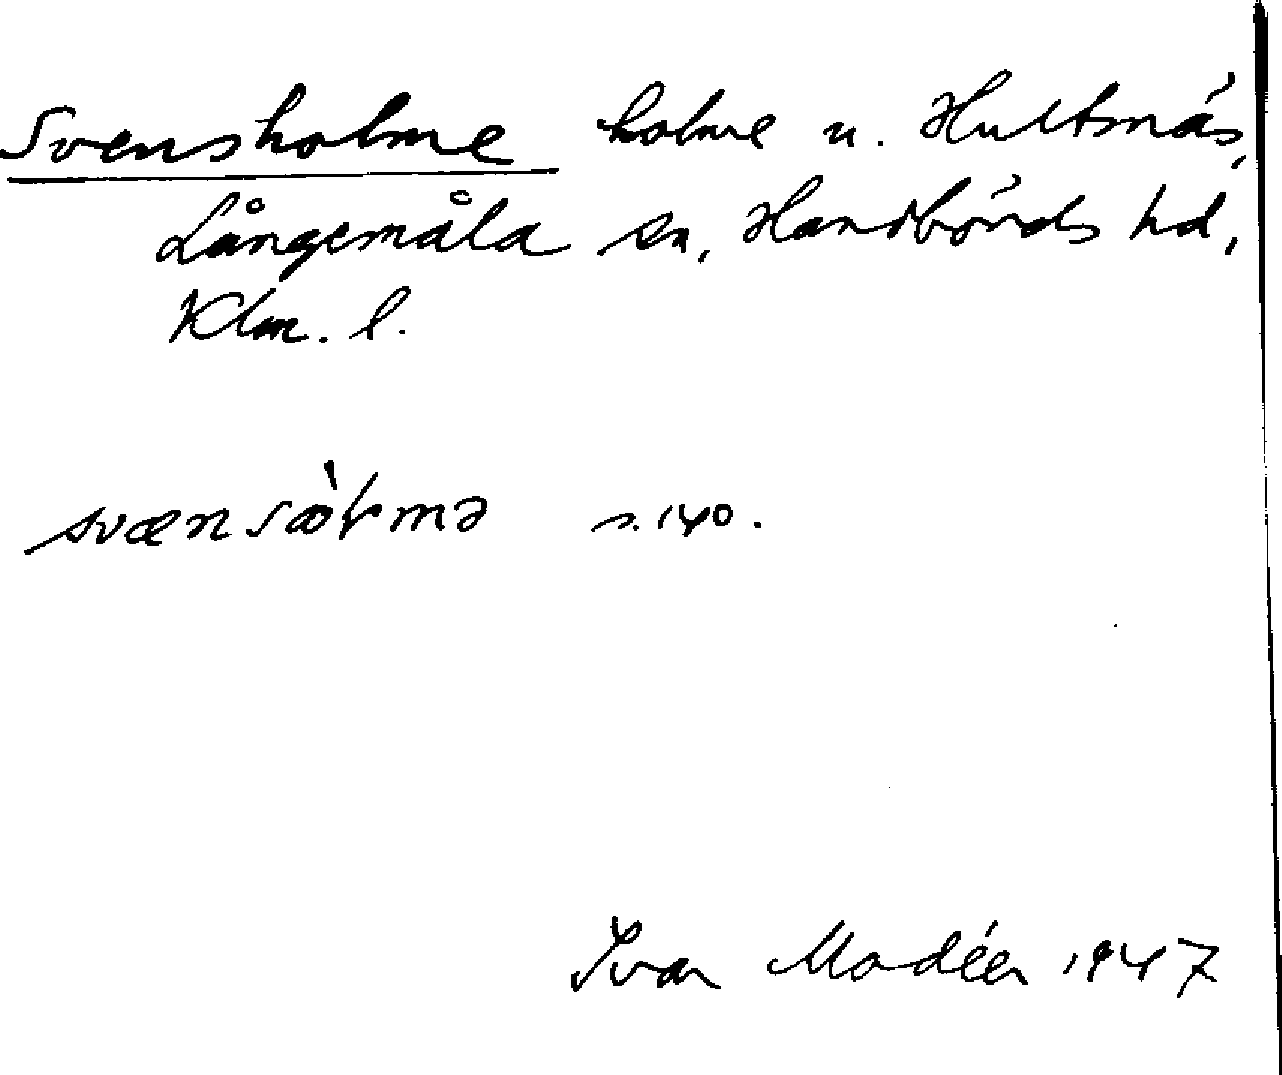 Svensholme holme u. Hultsnäs,
Långemåla sn, Handbörds hd,
Klm. l.
s. 140.
Ivar Modéer 1947